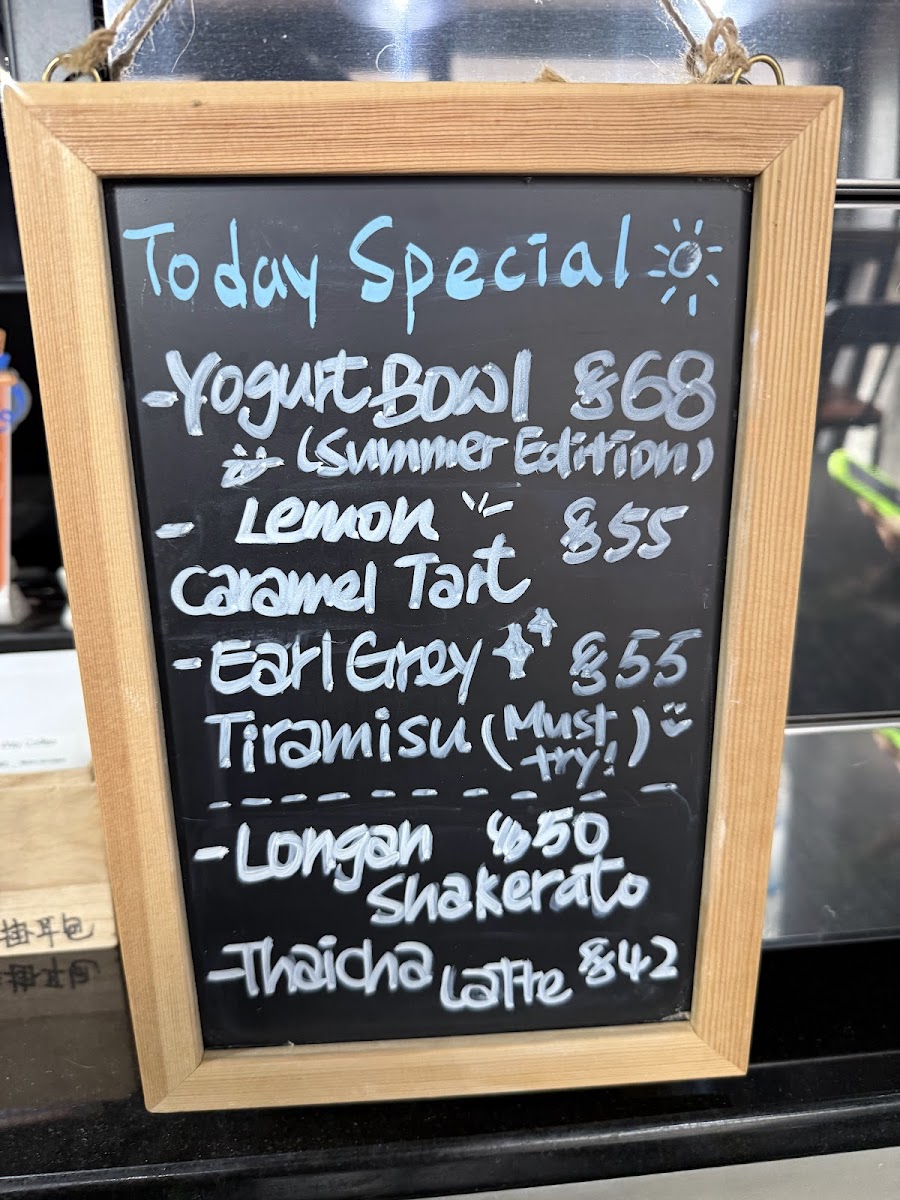 Today Special
- Yogurt Bowl $68
(Summer Edition)
- Lemon $55
Caramel Tart
- Earl Grey $55
Tiramisu (Must try!)
- Longan $50
Shakerato
- Thaicha Latte $42
掛耳包